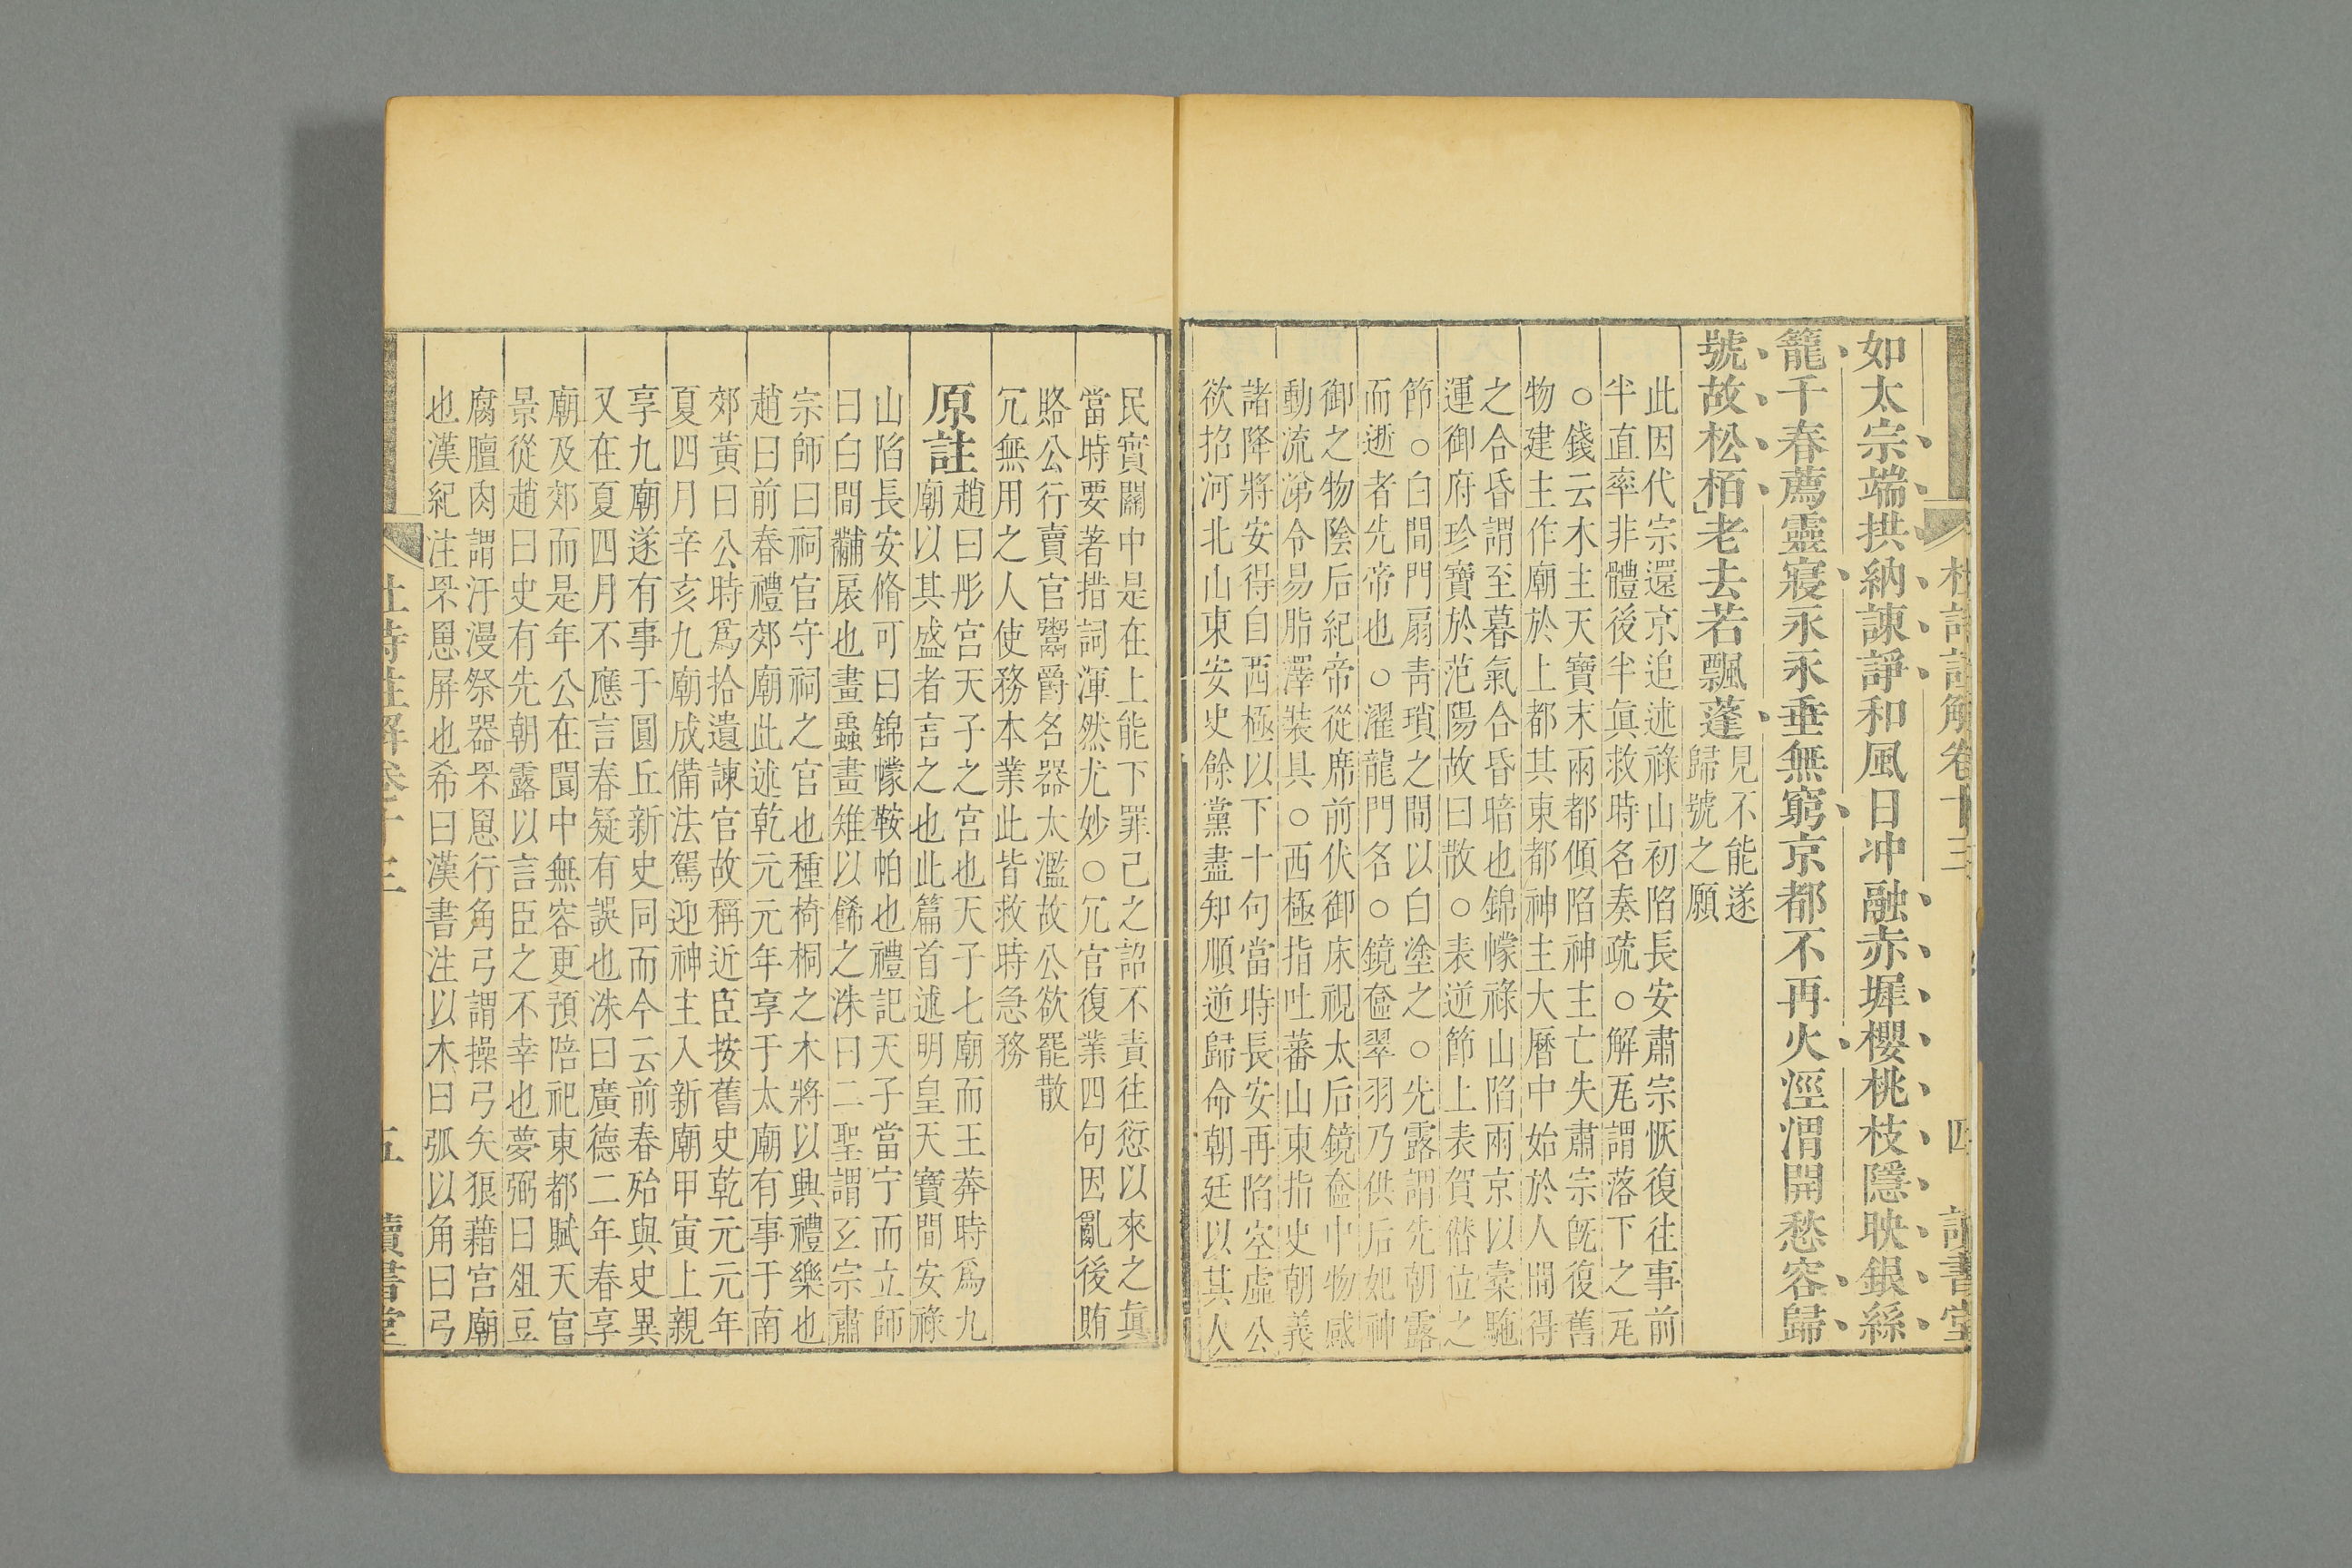 杜詩註解卷十三 四 讀書堂
如太宗端拱納諫諍和風日冲融赤墀櫻桃枝隱映銀絲
籠千春薦靈寢永永垂無窮京都不再火涇渭開愁容歸
號故松栢老去若飄蓬
見不能遂
歸號之願
此因代宗還京追述祿山初陷長安肅宗恢復往事前
半直率非體後半眞救時名奏疏○解瓦謂落下之瓦
○錢云木主天寶末兩都傾陷神主亡失肅宗旣復舊
物建主作廟於上都其東都神主大曆中始於人間得
之合昏謂至暮氣合昏暗也錦幪祿山陷兩京以槖駞
運御府珍寶於范陽故曰散○表逆節上表賀僭位之
節○白間門扇靑瑣之間以白塗之○先露謂先朝露
而逝者先帝也○濯龍門名○鏡奩翠羽乃供后妃神
御之物陰后紀帝從席前伏御床視太后鏡奩中物感
動流涕令易脂澤裝具○西極指吐蕃山東指史朝義
諸降將安得自西極以下十句當時長安再陷空虛公
欲招河北山東安史餘黨盡知順逆歸命朝廷以其人
民實關中是在上能下罪己之詔不責往愆以來之眞
當時要著措詞渾然尤妙○冗官復業四句因亂後賄
賂公行賣官鬻爵名器太濫故公欲罷散
冗無用之人使務本業此皆救時急務
原註
趙曰彤宮天子之宮也天子七廟而王莽時爲九
廟以其盛者言之也此篇首述明皇天寶間安祿
山陷長安脩可曰錦幪鞍帕也禮記天子當宁而立師
曰白間黼扆也畫蟲畫雉以餙之洙曰二聖謂玄宗肅
宗師曰祠官守祠之官也種椅桐之木將以興禮樂也
趙曰前春禮郊廟此述乾元元年享于太廟有事于南
郊黃曰公時爲拾遺諫官故稱近臣按舊史乾元元年
夏四月辛亥九廟成備法駕迎神主入新廟甲寅上親
享九廟遂有事于圓丘新史同而今云前春殆與史異
又在夏四月不應言春疑有誤也洙曰廣德二年春享
廟及郊而是年公在閬中無容更預陪祀東都賦天官
景從趙曰史有先朝露以言臣之不幸也夢弼曰俎豆
腐膻肉謂汙漫祭器罘罳行角弓謂操弓矢狠藉宮廟
也漢紀注罘罳屏也希曰漢書注以木曰弧以角曰弓
杜詩註解卷十三 五 讀書堂